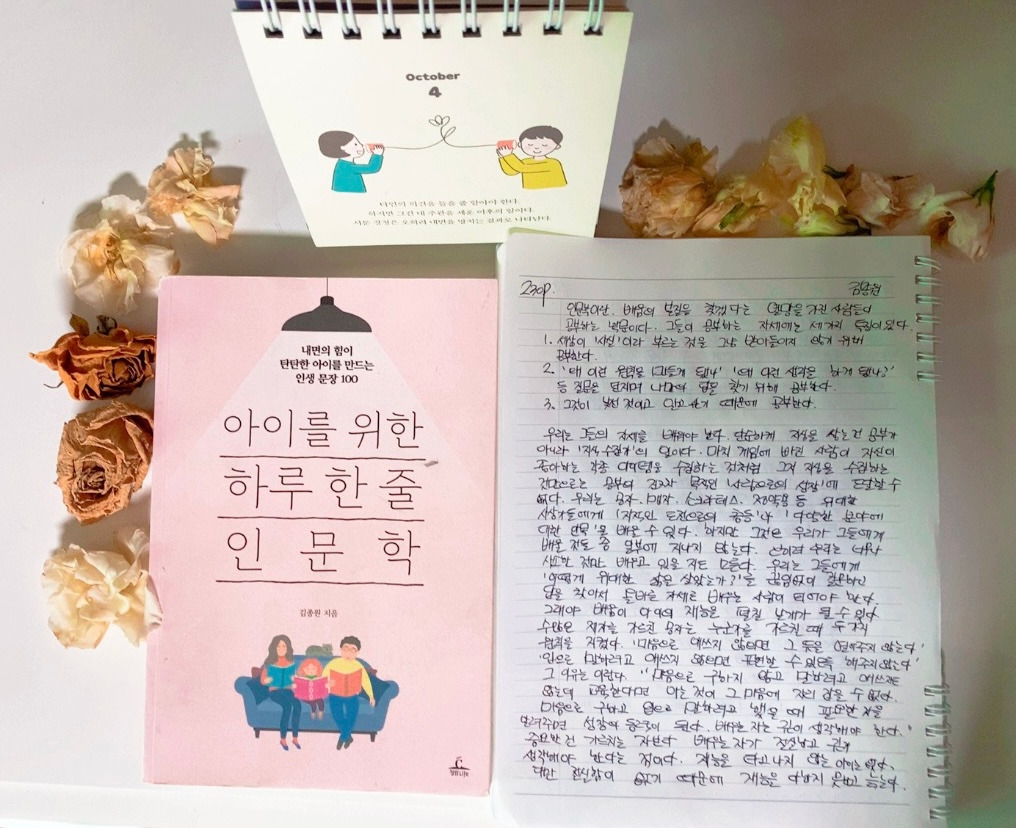 October
4
타인의 의견을 들을 줄 알아야 한다.
하지만 그건 내 주관을 세운 이후의 일이다.
서툰 경청은 오히려 내면을 망치는 결과로 나타난다.
내면의 힘이
탄탄한 아이를 만드는
인생 문장 100
아이를 위한
하루 한 줄
인문학
김종원 지음
230P 김종원
인문학이란, 배움의 본질을 찾겠다는 열망을 가진 사람들이
공부하는 학문이다. 그들이 공부하는 자세에는 세가지 특징이 있다.
1. 세상이 '사실'이라 부르는 것을 그냥 받아들이지 않기 위해
공부한다.
2. '왜 이런 원칙을 만들게 됐나' '왜 이런 생각을 하게 됐나?'
등 질문을 던지며 나만의 답을 찾기 위해 공부한다.
3. 그것이 낯선 것이고 알고 싶기 때문에 공부한다.
우리는 그들의 자세를 배워야 한다. 단순하게 지식을 쌓는 건 공부가
아니라 '지식 수집가'의 일이다. 마치 게임에 빠진 사람이 자신이
좋아하는 각종 아이템을 수집하는 것처럼 그저 지식을 수집하는
것만으로는 공부의 결과와 목적인 '나눔으로의 성장'에 도달할 수
없다. 우리는 공자, 맹자, 소크라테스, 정약용 등 위대한
사상가들에게 '지적인 도전으로의 충동'과 '다양한 분야에
대한 안목'을 배울 수 있다. 하지만 그것은 우리가 그들에게
배울 것들 중 일부에 지나지 않는다. 오히려 우리는 너무
사소한 것만 배우고 있을 지도 모른다. 우리는 그들에게
'어떻게 위대한 삶을 살았는가?'를 끊임없이 질문하고
답을 찾아서 올바른 자세로 배우는 사람이 되어야 한다.
그래야 배움이 아이의 재능을 펼칠 날개가 될 수 있다.
수많은 제자를 가르친 공자는 누군가를 가르칠 때 두가지
원칙을 지켰다. '마음으로 애쓰지 않으면 그 뜻을 전해주지 않는다'
'입으로 말하려고 애쓰지 않으면 표현할 수 있도록 해주지 않는다'
그 이유는 이렇다. "마음으로 구하지 않고 말하려고 애쓰지도
않는데 교육한다면 아는 것이 그 마음에 자리 잡을 수 없다.
마음으로 구하고 입으로 말하려고 했을 때 필요한 것을
알려주면 성장의 동력이 된다. 배우는 자는 깊이 생각해야 한다."
중요한 건 가르치는 자보다 배우는 자가 진실하고 깊게
생각해야 한다는 것이다. 재능을 타고나지 않는 아이는 없다.
다만 진실함이 없기 때문에 재능을 다하지 못하고 늙는다.